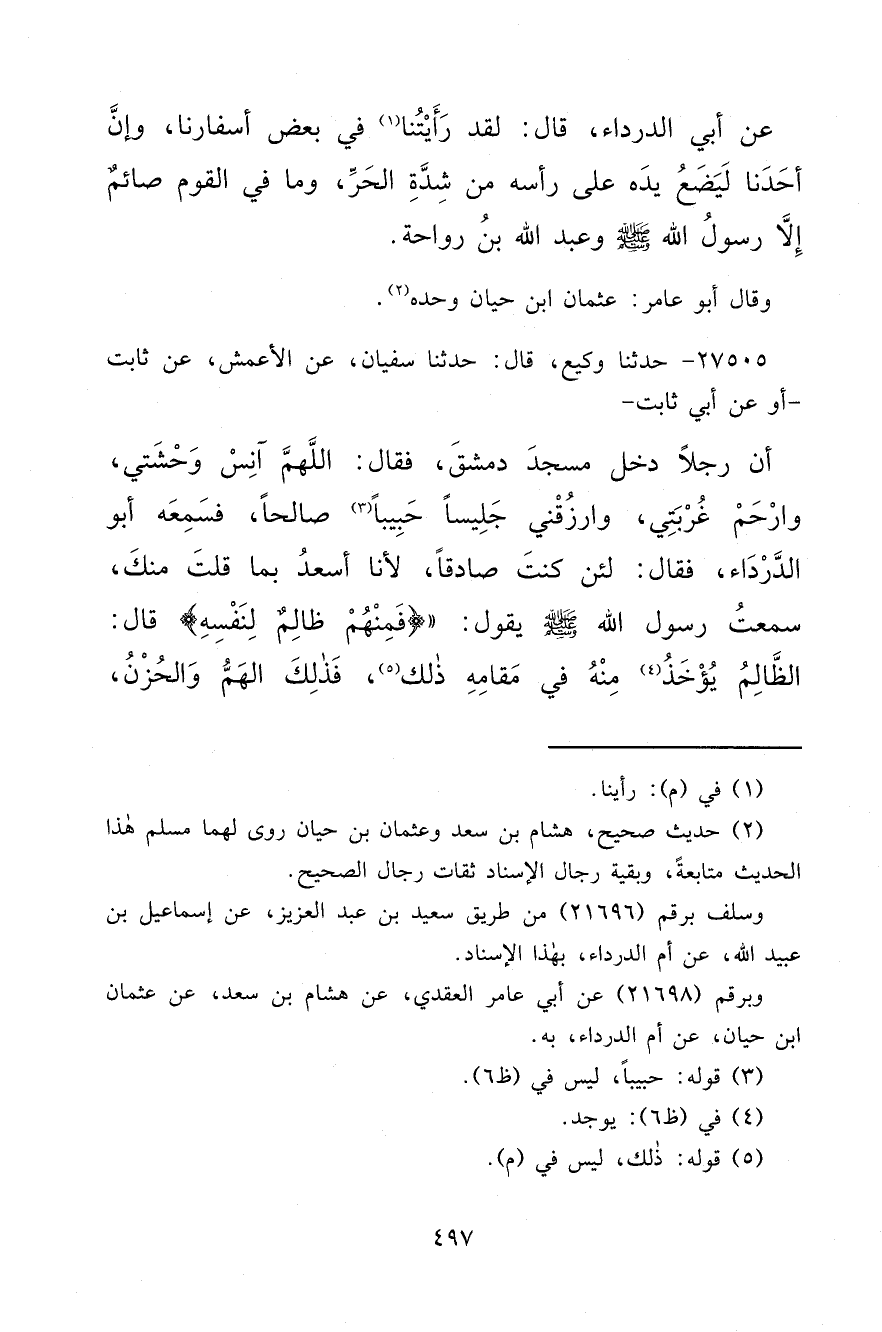 عن أبي الدرداء، قال: لقد رَأَيْتُنا(١) في بعض أسفارنا، وإنَّ
أحَدَنا لَيَضَعُ يدَه على رأسه من شِدَّةِ الحَرِّ، وما في القوم صائمٌ
إلَّا رسولُ الله ﷺ وعبد الله بنُ رواحة.
وقال أبو عامر: عثمان ابن حيان وحده(٢).
٢٧٥٠٥- حدثنا وكيع، قال: حدثنا سفيان، عن الأعمش، عن ثابت
-أو عن أبي ثابت-
أن رجلاً دخل مسجدَ دمشقَ، فقال: اللَّهمَّ آنِسْ وَحْشَتي،
وارْحَمْ غُرْبَتِي، وارزُقْني جَلِيساً حَبِيباً(٣) صالحاً، فسَمِعَه أبو
الدَّرْدَاء، فقال: لئن كنتَ صادقاً، لأنا أسعدُ بما قلتَ منكَ،
سمعتُ رسول الله ﷺ يقول: «﴿فَمِنْهُمْ ظالِمٌ لِنَفْسِهِ﴾ قال:
الظَّالِمُ يُؤْخَذُ(٤) مِنْهُ في مَقامِهِ ذٰلك(٥)، فَذٰلِكَ الهَمُّ وَالحُزْنُ،
(١) في (م): رأينا.
(٢) حديث صحيح، هشام بن سعد وعثمان بن حيان روى لهما مسلم هٰذا
الحديث متابعةً، وبقية رجال الإسناد ثقات رجال الصحيح.
وسلف برقم (٢١٦٩٦) من طريق سعيد بن عبد العزيز، عن إسماعيل بن
عبيد الله، عن أم الدرداء، بهٰذا الإسناد.
وبرقم (٢١٦٩٨) عن أبي عامر العقدي، عن هشام بن سعد، عن عثمان
ابن حيان، عن أم الدرداء، به.
(٣) قوله: حبيباً، ليس في (ظ٦).
(٤) في (ظ٦): يوجد.
(٥) قوله: ذٰلك، ليس في (م).
٤٩٧